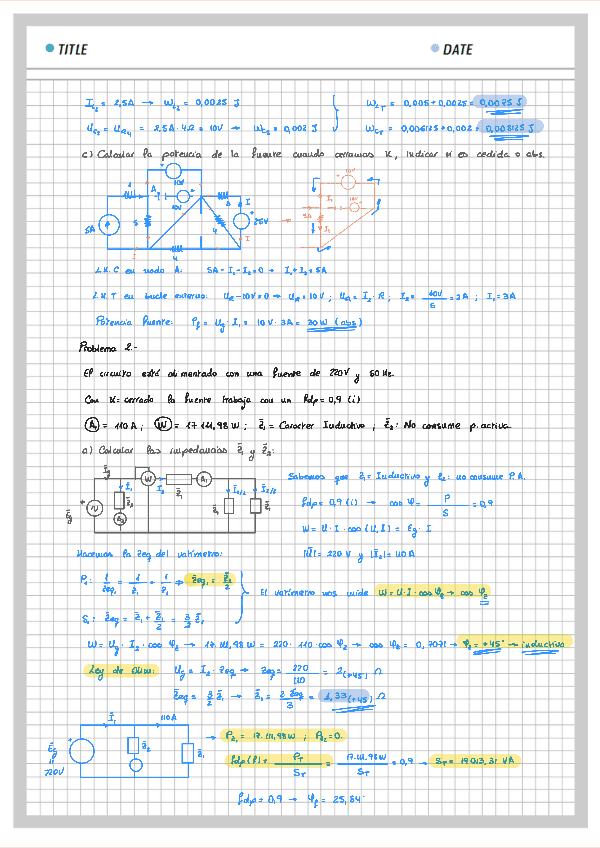 TITLE
DATE
I_L2 = 2,5A → W_L2 = 0,0025 J
W_LT = 0,005 + 0,0025 = 0,0075 J
U_C2 = U_R4 = 2,5A · 4Ω = 10V → W_C2 = 0,002 J
W_CT = 0,006125 + 0,002 = 0,008125 J
c) Calcular la potencia de la fuente cuando cerramos K, indicar si es cedida o abs.
L.K.C en nodo A: 5A - I1 - I2 = 0 → I1 + I2 = 5A
L.K.T en bucle externo: U_R - 10V = 0 → U_R = 10V ; U_R = I2 · R ; I2 = 10V / 5 = 2A ; I1 = 3A
Potencia fuente: Pf = Ug · I1 = 10V · 3A = 30W (abs)
Problema 2.-
El circuito está alimentado con una fuente de 220V y 50 Hz.
Con K cerrado la fuente trabaja con un fdp = 0,9 (i)
A1 = 110A ; W = 17.111,98 W ; Z1 = Caracter Inductivo ; Z2: No consume p. activa
a) Calcular las impedancias Z1 y Z2:
Sabemos que Z1 = Inductivo y Z2: no consume P.A.
fdp = 0,9 (i) → cos φ = P / S = 0,9
W = U · I · cos (U, I) = Eg · I
|U| = 220 V y |I2| = 110 A
Hacemos la Zeq del vatímetro:
P1: 1/Zeq1 = 1/Z1 + 1/Z1 → Zeq1 = Z1/2
El vatímetro nos mide W = U · I · cos φ2 → cos φ2
S1: Zeq = Z1 + Z1/2 = 3/2 Z1
W = Ug · I2 · cos φ2 → 17.111,98 W = 220 · 110 · cos φ2 → cos φ2 = 0,7071 → φ2 = +45° → inductivo
Ley de Ohm: Ug = I2 · Zeq → Zeq = 220 / 110 = 2(+45) Ω
Zeq = 3/2 Z1 → Z1 = 2 Zeq / 3 = 1,33 (+45) Ω
I1 110A
Eg
220V
→ P_Z1 = 17.111,98W ; P_Z2 = 0.
fdp(f) = PT / ST = 17.111,98W / ST = 0,9 → ST = 19.013,31 VA
fdp = 0,9 → φf = 25,84°